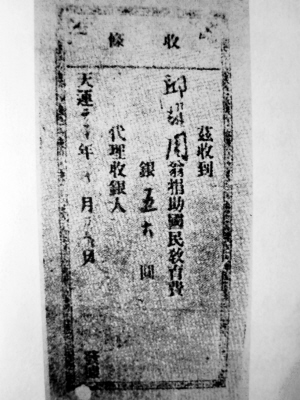 收條
茲收到
邱 周翁捐助國民教育費
銀五大圓
代理收銀人
天運 年 月 日